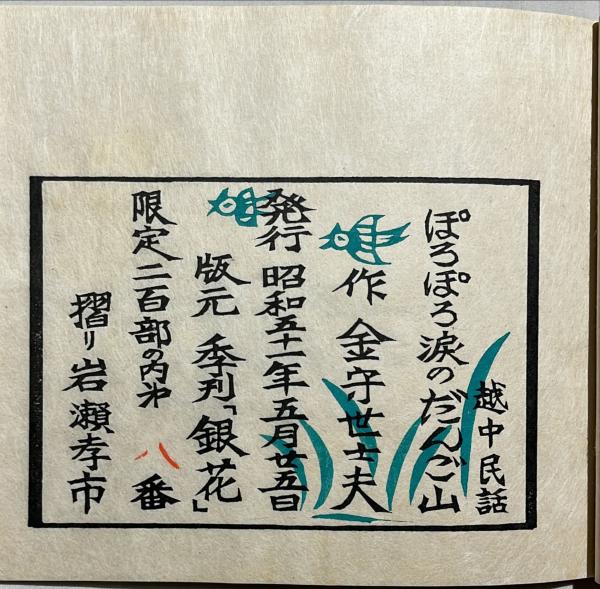 越中民話
ぽろぽろ涙のだんご山
作 金守世士夫
発行 昭和五十一年五月廿五日
版元 季刊「銀花」
限定二百部の内第 八番
摺り 岩瀬孝市